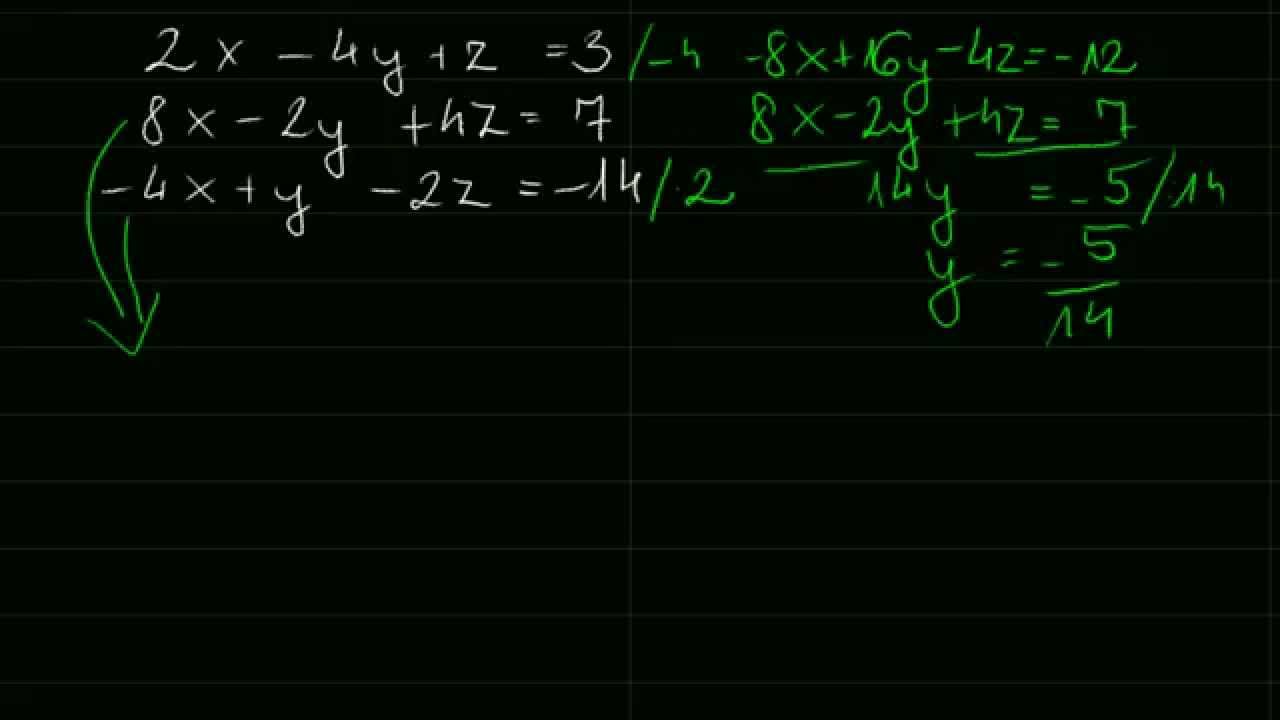 2x - 4y + z = 3 /-4
8x - 2y + 4z = 7
-4x + y - 2z = -14 /·2
-8x + 16y - 4z = -12
8x - 2y + 4z = 7
14y = -5 /:14
y = - 5
14